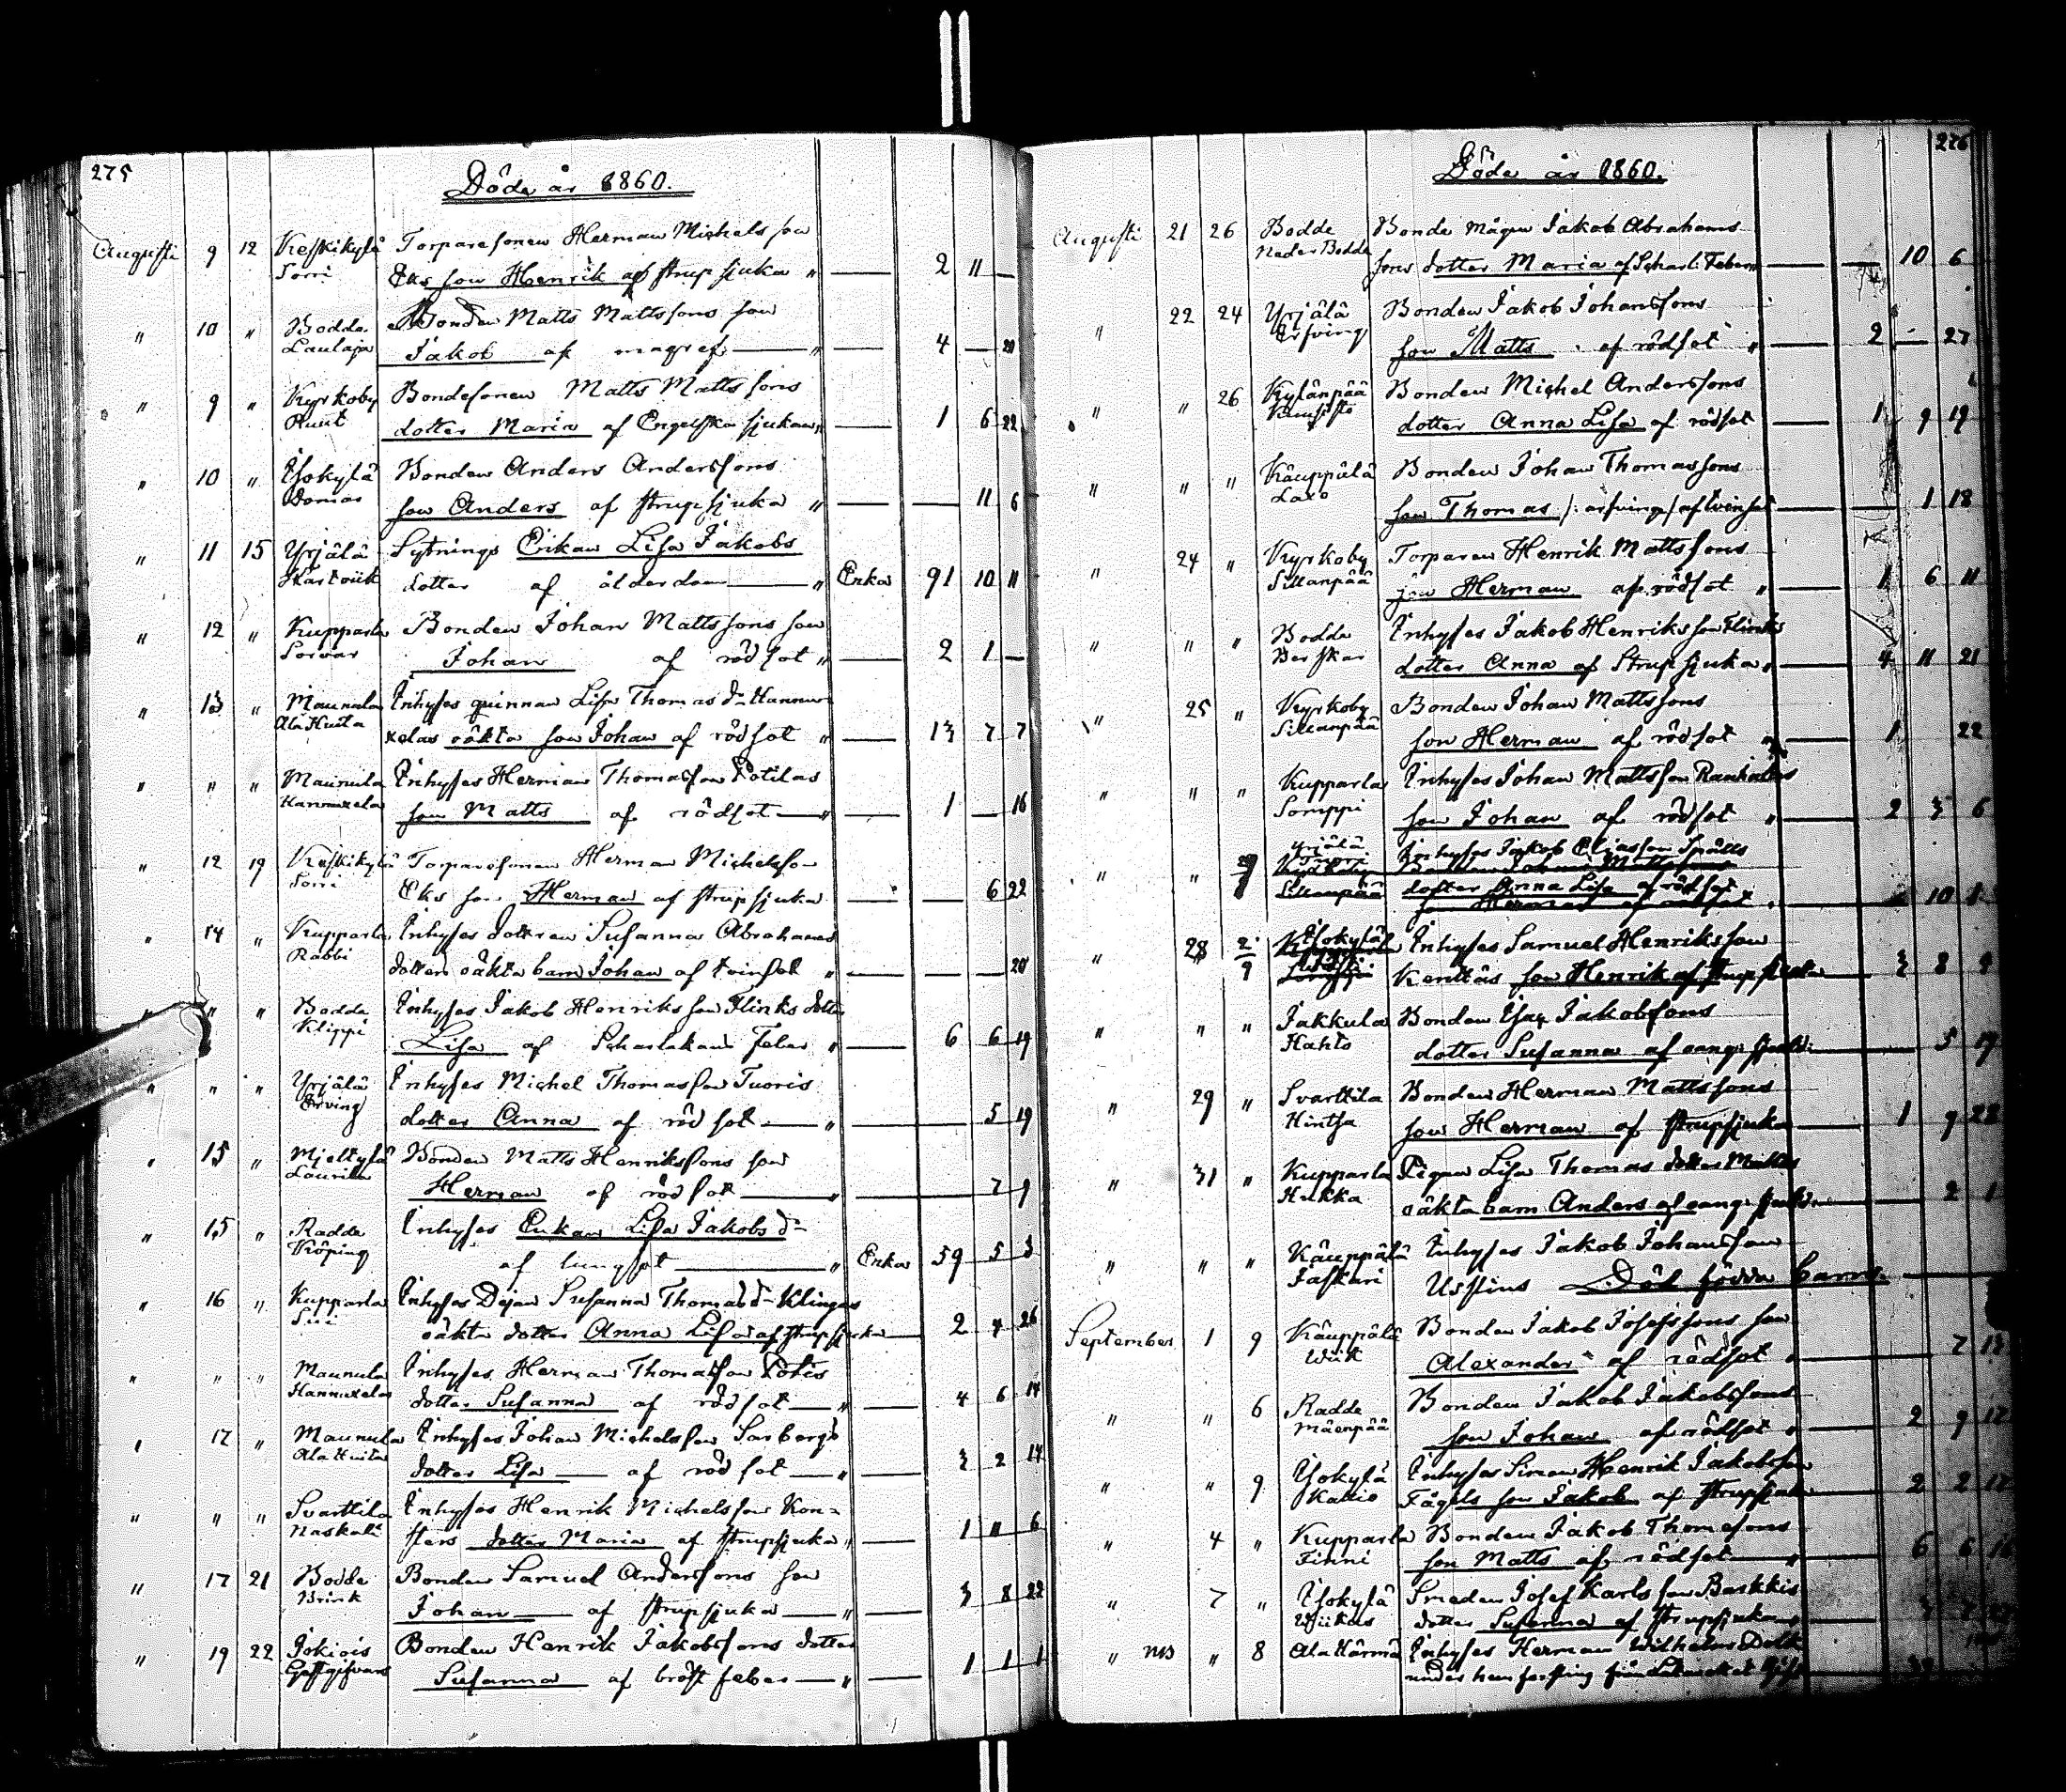 275
Döde år 1860.
Augusti 9 12 Keskikylä Torparesonen Herman Michelsson
Sorri Eks son Henrik af strupsjuka " — 2 11 —
" 10 " Bodda Bonden Matts Mattssons son
Laulaja Jakob af magref — " — 4 — 20
" 9 " Kyrkoby Bondesonen Matts Mattssons
Ruut dotter Maria af Engelska sjukan " — 1 6 22
" 10 " Ylokylä Bonden Anders Anderssons
Domar son Anders af strupsjuka " — — 11 6
" 11 15 Yrjälä Sytnings Enkan Lisa Jakobs
Kartvik dotter af ålderdom — " Enka 91 10 11
" 12 " Kupparla Bonden Johan Mattssons son
Sorvar Johan af rödsot " — 2 1 —
" 13 " Maunula Inhyses quinnan Lisa Thomas d:r Hannu-
Ala Huita xelas oäkta son Johan af rödsot " — 13 7 7
" " " Maunula Inhyses Herman Thomasson Potilas
Hannuxela son Matts af rödsot — " — 1 — 16
" 12 19 Keskikylä Torparesonen Herman Michelsson
Sorri Eks son Herman af strupsjuka — — 6 22
" 14 " Kupparla Inhyses dottren Susanna Abrahams
Rabbi dotters oäkta barn Johan af tvinsot " — — — 20
" " " Bodda Inhyses Jakob Henriksson Flinks dotter
Klippi Lisa af Scharlakans Feber " — 6 6 19
" " " Yrjälä Inhyses Michel Thomasson Tuoris
Erving dotter Anna af rödsot — " — 5 19
" 15 " Mjelkylä Bonden Matts Henrikssons son
Laurila Herman af rödsot — " — 7 9
" 15 " Radde Inhyses Enkan Lisa Jakobs d:r
Köping af lungsot — " Enka 59 5 3
" 16 " Kupparla Inhyses Dejan Susanna Thomas d:r Klingas
Sii oäkta dotter Anna Lisa af strupsjuka — 2 4 26
" " " Maunula Inhyses Herman Thomasson Potis
Hannuxelas dotter Susanna af rödsot — " — 4 6 14
" 17 " Maunula Inhyses Johan Michelsson Sarbergs
Ala Huita dotter Lisa — af rödsot — " — 3 2 14
" " " Svarttila Inhyses Henrik Michelsson Kon-
Naskali sters dotter Maria af strupsjuka " — 1 11 6
" 17 21 Bodda Bonden Samuel Anderssons son
Brink Johan — af strupsjuka — " — 3 8 22
" 19 22 Jokiois Bonden Henrik Jakobssons dotter
Gästgifvars Susanna af bröst feber — " — 1 1 1
276
Döde år 1860.
Augusti 21 26 Bodde Bonde Mågen Jakob Abrahams
Neder Bodda sons dotter Maria af Scharl: Febern — 10 6
" 22 24 Yrjälä Bonden Jakob Johanssons
Erfving son Matts af rödsot " — 2 — 27
" " 26 Kylänpää Bonden Michel Anderssons
dotter Anna Lisa af rödsot — 1 9 19
" " " Käuppälä Bonden Johan Thomassons
Laxo son Thomas /: arfvinge / af tvinsot — 1 18
" 24 " Kyrkoby Torparen Henrik Mattssons
Sillanpää son Herman af rödsot " — 1 6 11
" " " Bodda Inhyses Jakob Henriksson Flinks
dotter Anna af Strupsjuka " — 4 11 21
" 25 " Kyrkoby Bonden Johan Mattssons
Sillanpää son Herman af rödsot " — 1 22
" " " Kupparla Inhyses Johan Mattsson
Somppi son Johan af rödsot " — 2 3 6
" " Yrjälä Inhyses Jakob Eliasson
Tuori
Sillanpää dotter Anna Lisa af rödsot — 10
" 28 2/9 Ylokylä Inhyses Samuel Henriksson
Kenttäs son Henrik af strupsjuka — 3 8 9
" " " Jakkula Bonden Isax Jakobssons
Hahto dotter Susanna af oang: sjukd: — 5 19
" 29 " Svarttila Bonden Herman Mattssons
Hintsa son Herman af strupsjuka — 1 9 22
" 31 " Kupparla Pigan Lisa Thomas dotter Matts
Hukka oäkta barn Anders af oang: sjukd: — 2 1
" " " Käuppälä Inhyses Jakob Johansson
Jaskari Usstins Död födda barn —
September 1 9 Käuppälä Bonden Jakob Josefssons son
Wiik Alexander af rödsot — 7 13
" " 6 Radde Bonden Jakob Jakobssons
Mäenpää son Johan af rödsot " — 2 9 12
" " 9 Ylokylä Inhyses Simon Henrik Jakobsson
Kallio Fågels son Jakob af strupsjuka — 2 2 17
" 4 " Kupparla Bonden Jakob Thomassons
Finni son Matts af rödsot — " — 6 6 16
" 7 " Ylokylä Smeden Josef Karlsson Backkis
dotter Susanna af strupsjuka —
" " 8 Ala Härmä Inhyses Herman Wilhelm
under hemforsling från